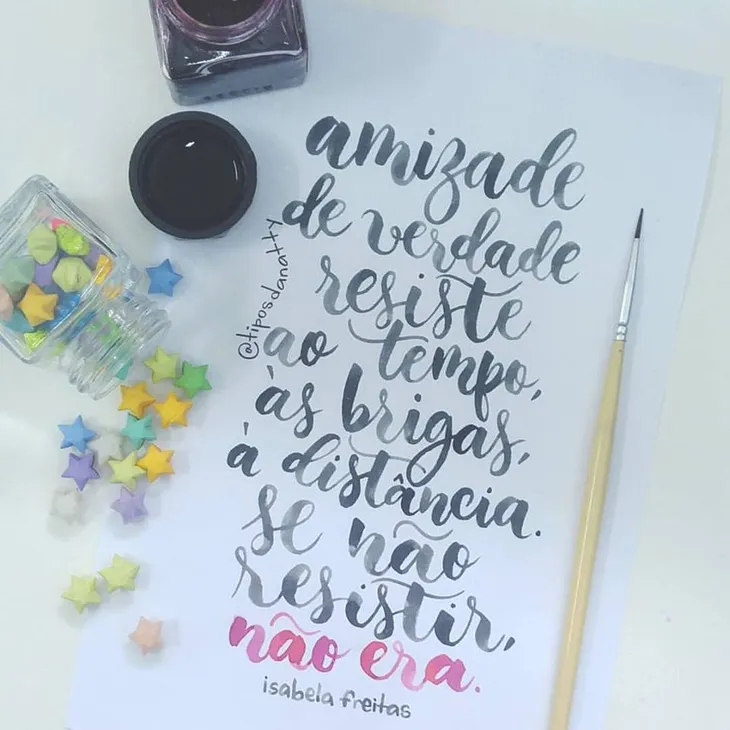 amizade
de verdade
resiste
ao tempo,
às brigas,
à distância.
se não
resistir,
não era.
isabela freitas
@tiposdanatty